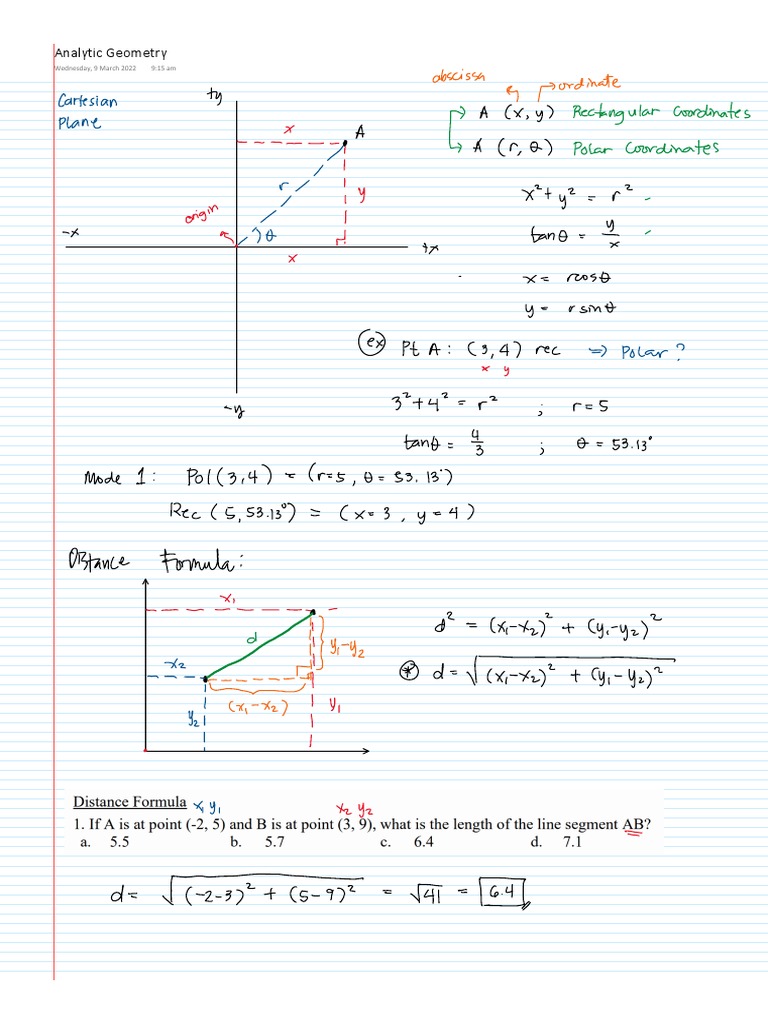 Analytic Geometry
Wednesday, 9 March 2022 9:15 am
Cartesian
Plane
+y
x
A
r
y
origin
θ
-x
+x
x
-y
abscissa
ordinate
A (x, y) Rectangular Coordinates
A (r, θ) Polar Coordinates
x² + y² = r²
tanθ = y/x
x = rcosθ
y = r sinθ
ex Pt A: (3,4) rec => Polar?
x y
3² + 4² = r² ; r = 5
tanθ = 4/3 ; θ = 53.13°
Mode 1: Pol(3,4) = (r=5, θ = 53.13°)
Rec (5, 53.13°) = (x=3, y=4)
Distance Formula:
x₁
d
y₁-y₂
x₂
(x₁-x₂)
y₂
y₁
d² = (x₁-x₂)² + (y₁-y₂)²
* d = √(x₁-x₂)² + (y₁-y₂)²
Distance Formula x₁ y₁ x₂ y₂
1. If A is at point (-2, 5) and B is at point (3, 9), what is the length of the line segment AB?
a. 5.5 b. 5.7 c. 6.4 d. 7.1
d = √(-2-3)² + (5-9)² = √41 = 6.4